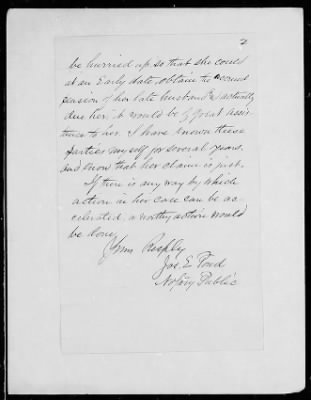 2
be hurried up so that she could
at an Early date, obtain the accrued
pension of her late husband actually
due her, it would be of great assis-
tance to her. I have known these
parties myself for several years,
and know that her claim is just.
If there is any way by which
action in her case can be ac-
celerated, a worthy action would
be done.
Yours Respfly
Jas. E. Ford
Notary Public